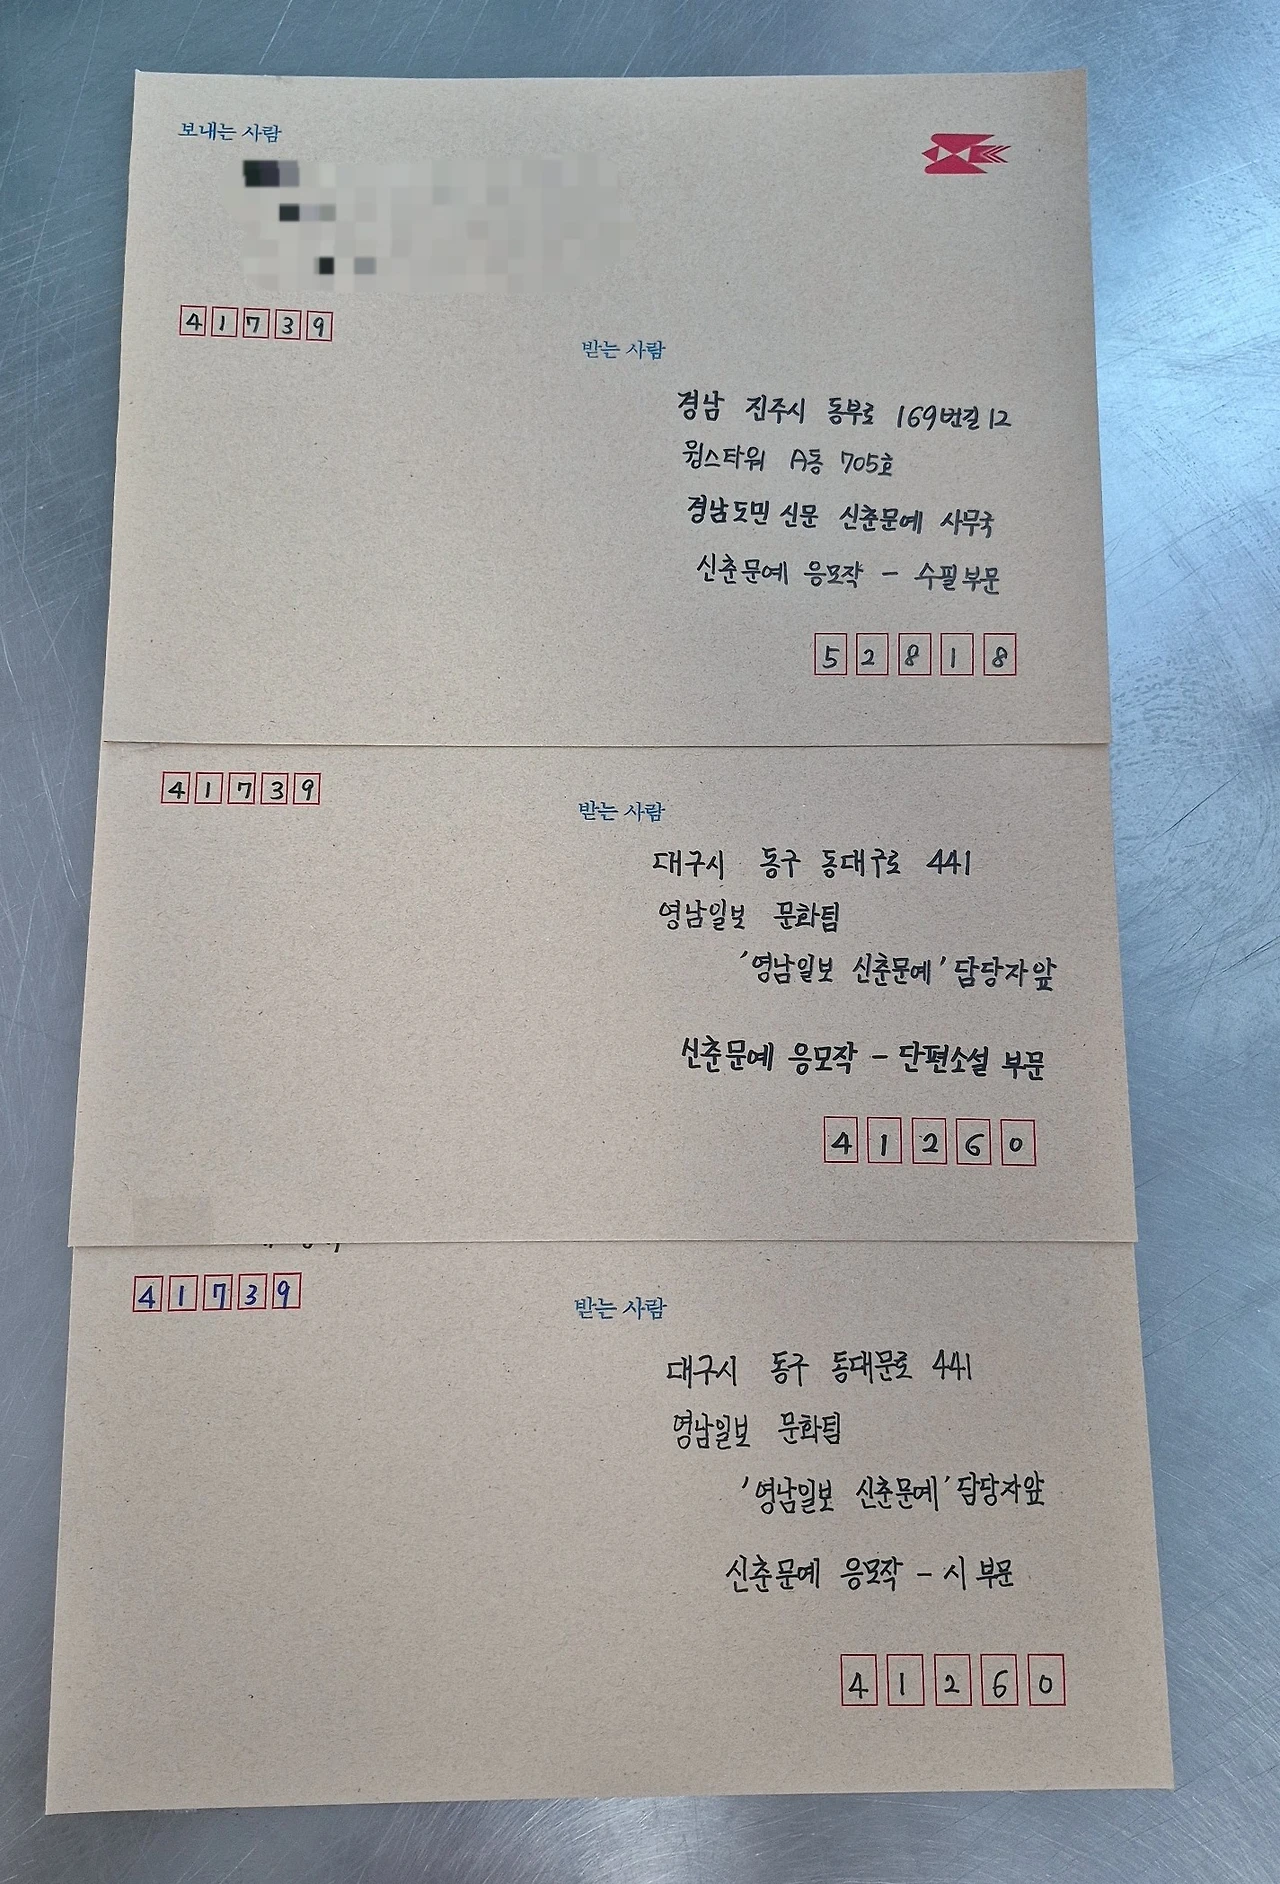 보내는 사람
41739
받는 사람
경남 진주시 동부로 169번길 12
윙스타워 A동 705호
경남도민신문 신춘문예 사무국
신춘문예 응모작 - 수필부문
52818
41739
받는 사람
대구시 동구 동대구로 441
영남일보 문화팀
'영남일보 신춘문예' 담당자앞
신춘문예 응모작 - 단편소설 부문
41260
41739
받는 사람
대구시 동구 동대문로 441
영남일보 문화팀
'영남일보 신춘문예' 담당자앞
신춘문예 응모작 - 시 부문
41260